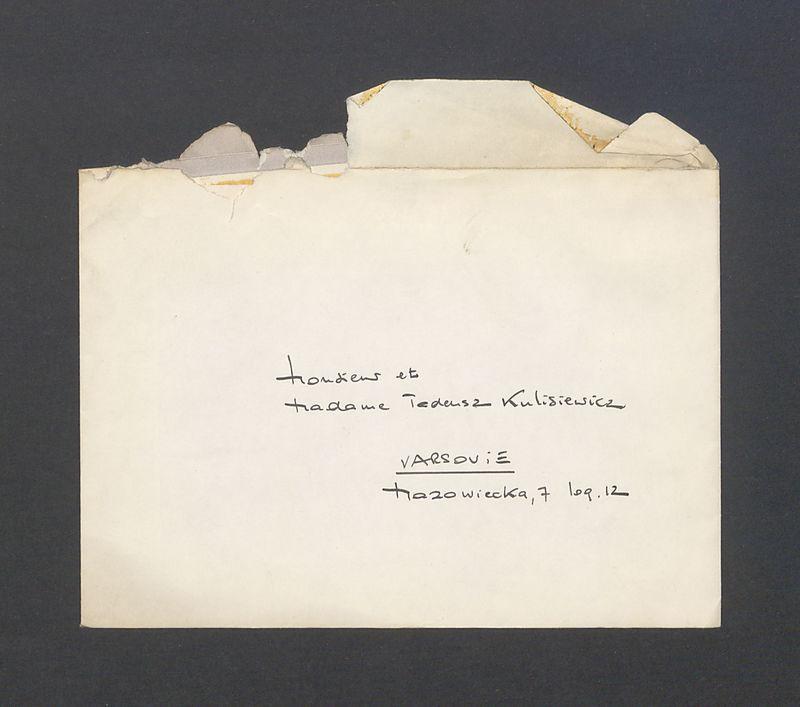 Monsieur et
Madame Tadeusz Kulisiewicz
VARSOVIE
Mazowiecka, 7 log. 12